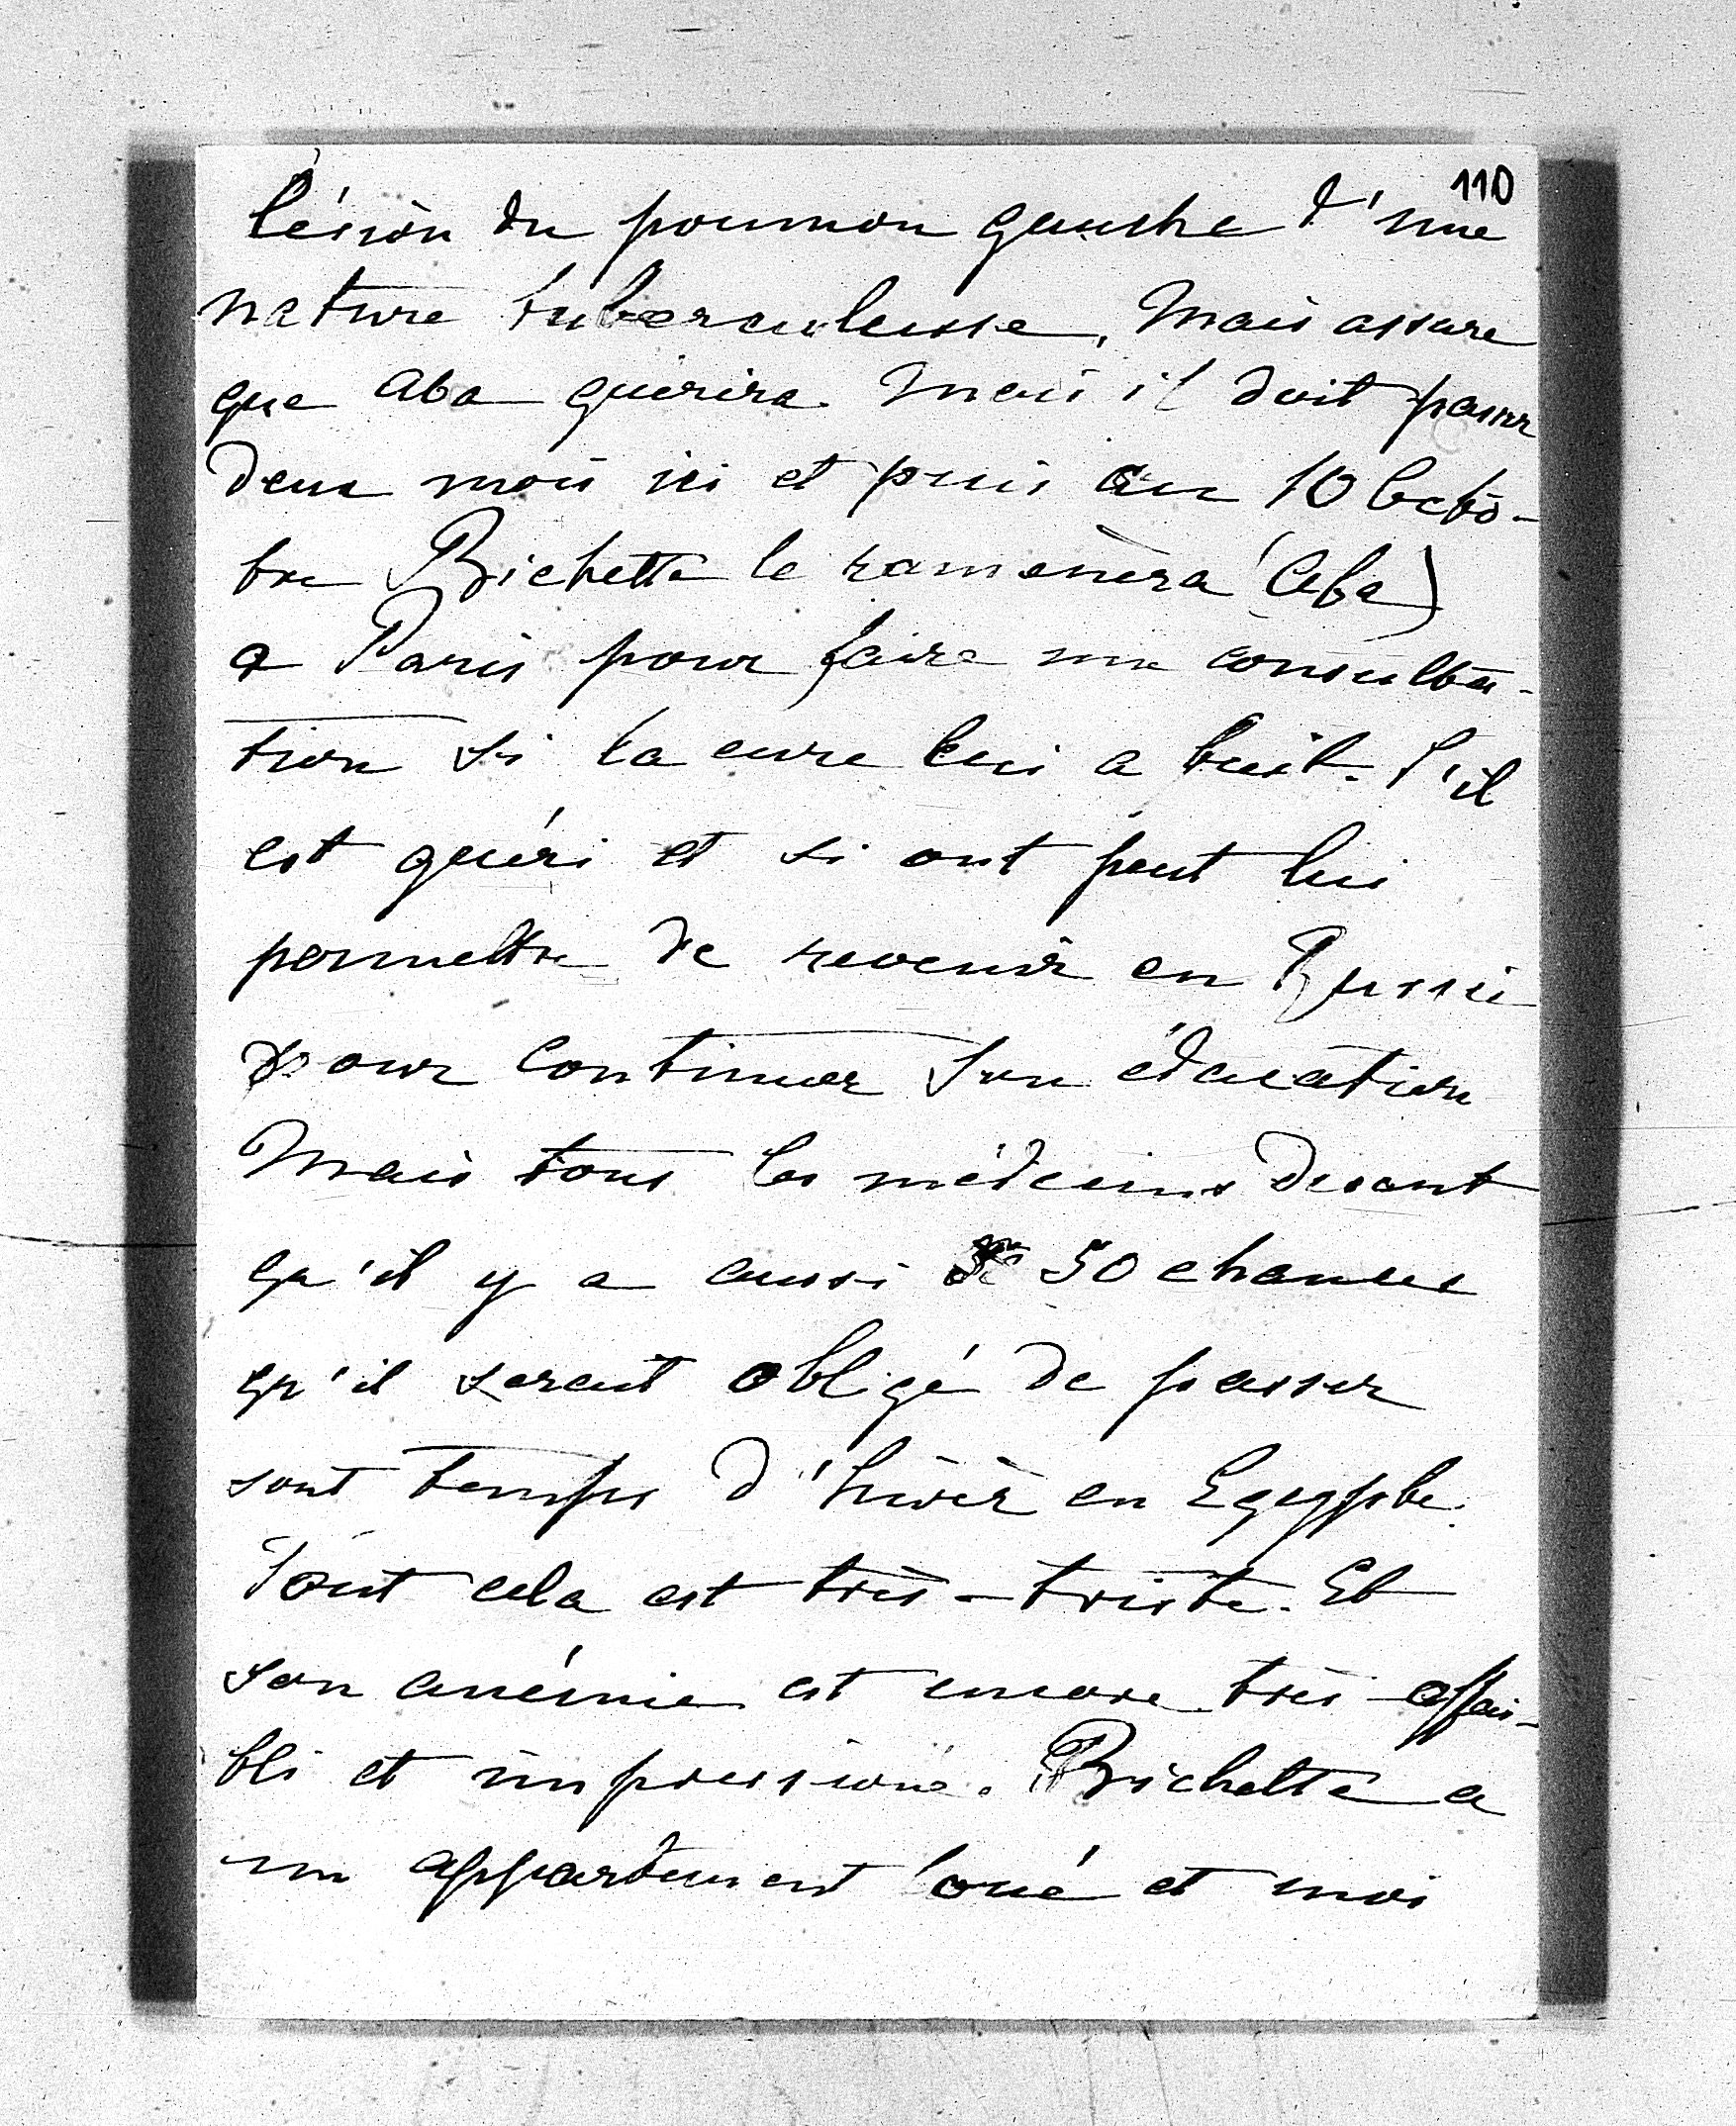 110
lésion du poumon gaushe d'une
nature tuberculeusse, Mais assure
que Aba guérira Mais il doit passer
deux mois ici et puis au 10 Octo-
bre Bichette le ramenèra (Aba)
a Paris pour faire une consulta-
tion si la cure lui a suit. S'il
est guéri et si ont peut lui
permettre de revenir en Russie
pour continuer son éducation
Mais tous les médecins disent
qu'il y a aussi 50 chances
qu'il serait obligé de passer
sont temps d'hivèr en Egypte.
Tout cela est très-triste. Et
son anémie est encore très affai-
bli et impressioné. Bichette a
un appartement loué et moi